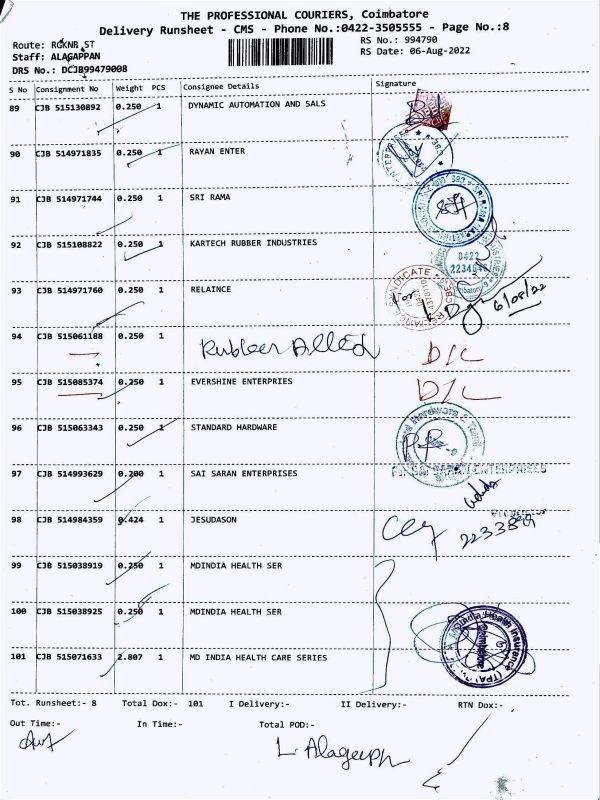 THE PROFESSIONAL COURIERS, Coimbatore
Delivery Runsheet - CMS - Phone No.:0422-3505555 - Page No.:8
Route: RGKNR ST
RS No.: 994790
Staff: ALAGAPPAN
RS Date: 06-Aug-2022
DRS No.: DCJB99479008
S No Consignment No Weight PCS Consignee Details Signature
89 CJB 515130892 0.250 1 DYNAMIC AUTOMATION AND SALS
90 CJB 514971835 0.250 1 RAYAN ENTER
91 CJB 514971744 0.250 1 SRI RAMA
92 CJB 515108822 0.250 1 KARTECH RUBBER INDUSTRIES
0422
93 CJB 514971760 0.250 1 RELAINCE
For
6/08/22
94 CJB 515061188 0.250 1 Rubber Allied D/L
95 CJB 515085374 0.250 1 EVERSHINE ENTERPRIES D/L
96 CJB 515063343 0.250 1 STANDARD HARDWARE
97 CJB 514993629 0.200 1 SAI SARAN ENTERPRISES
98 CJB 514984359 0.424 1 JESUDASON
99 CJB 515038919 0.250 1 MDINDIA HEALTH SER
100 CJB 515038925 0.250 1 MDINDIA HEALTH SER
MDIndia Health Insurance (TPA)
Coimbatore
101 CJB 515071633 2.807 1 MD INDIA HEALTH CARE SERIES
Tot. Runsheet:- 8 Total Dox:- 101 I Delivery:- II Delivery:- RTN Dox:-
Out Time:- In Time:- Total POD:-